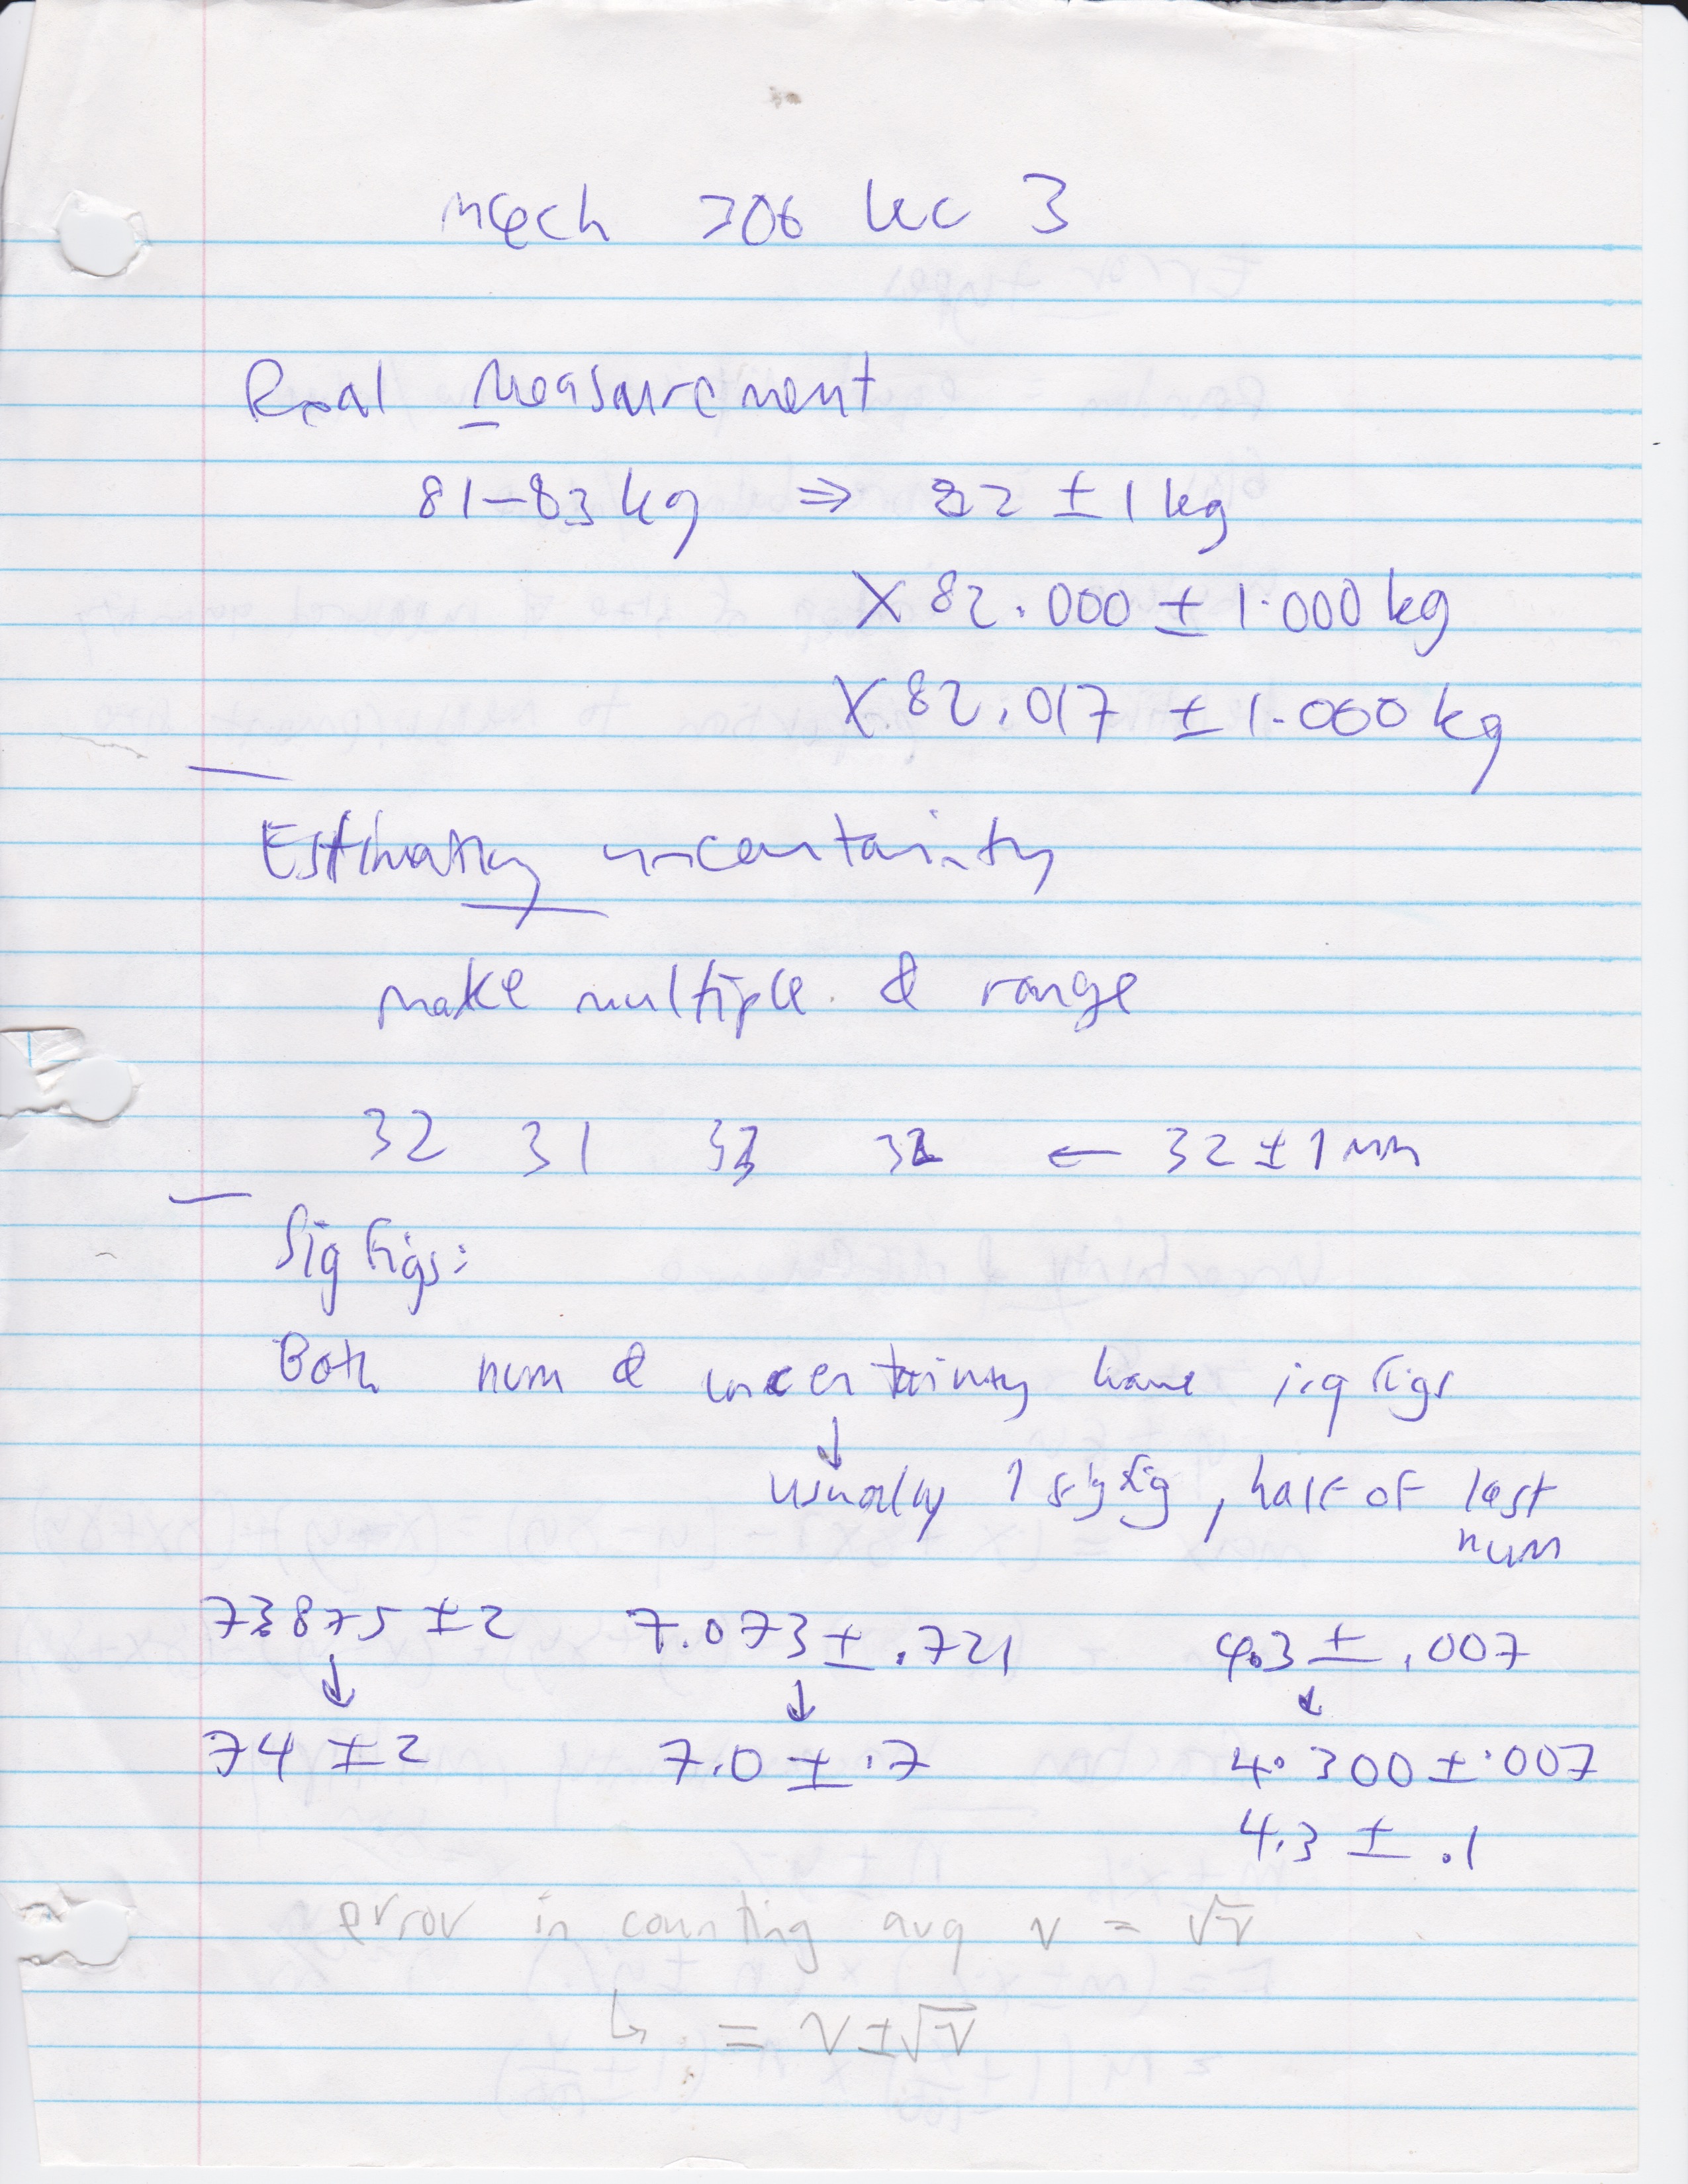 Mech 706 Lec 3
Real Measurement
81-83 kg ⇒ 82 ± 1 kg
X 82.000 ± 1.000 kg
X 82.017 ± 1.000 kg
Estimating uncertainty
make multiple & range
32 31 33 32 ← 32 ± 1 mm
Sig figs:
Both num & uncertainty have sig figs
↓
usually 1 sig fig, half of last
num
73.875 ± 2 7.073 ± .721 4.3 ± .007
↓ ↓ ↓
74 ± 2 7.0 ± .7 4.300 ± .007
4.3 ± .1
error in counting avg v = √v
↳ = v ± √v